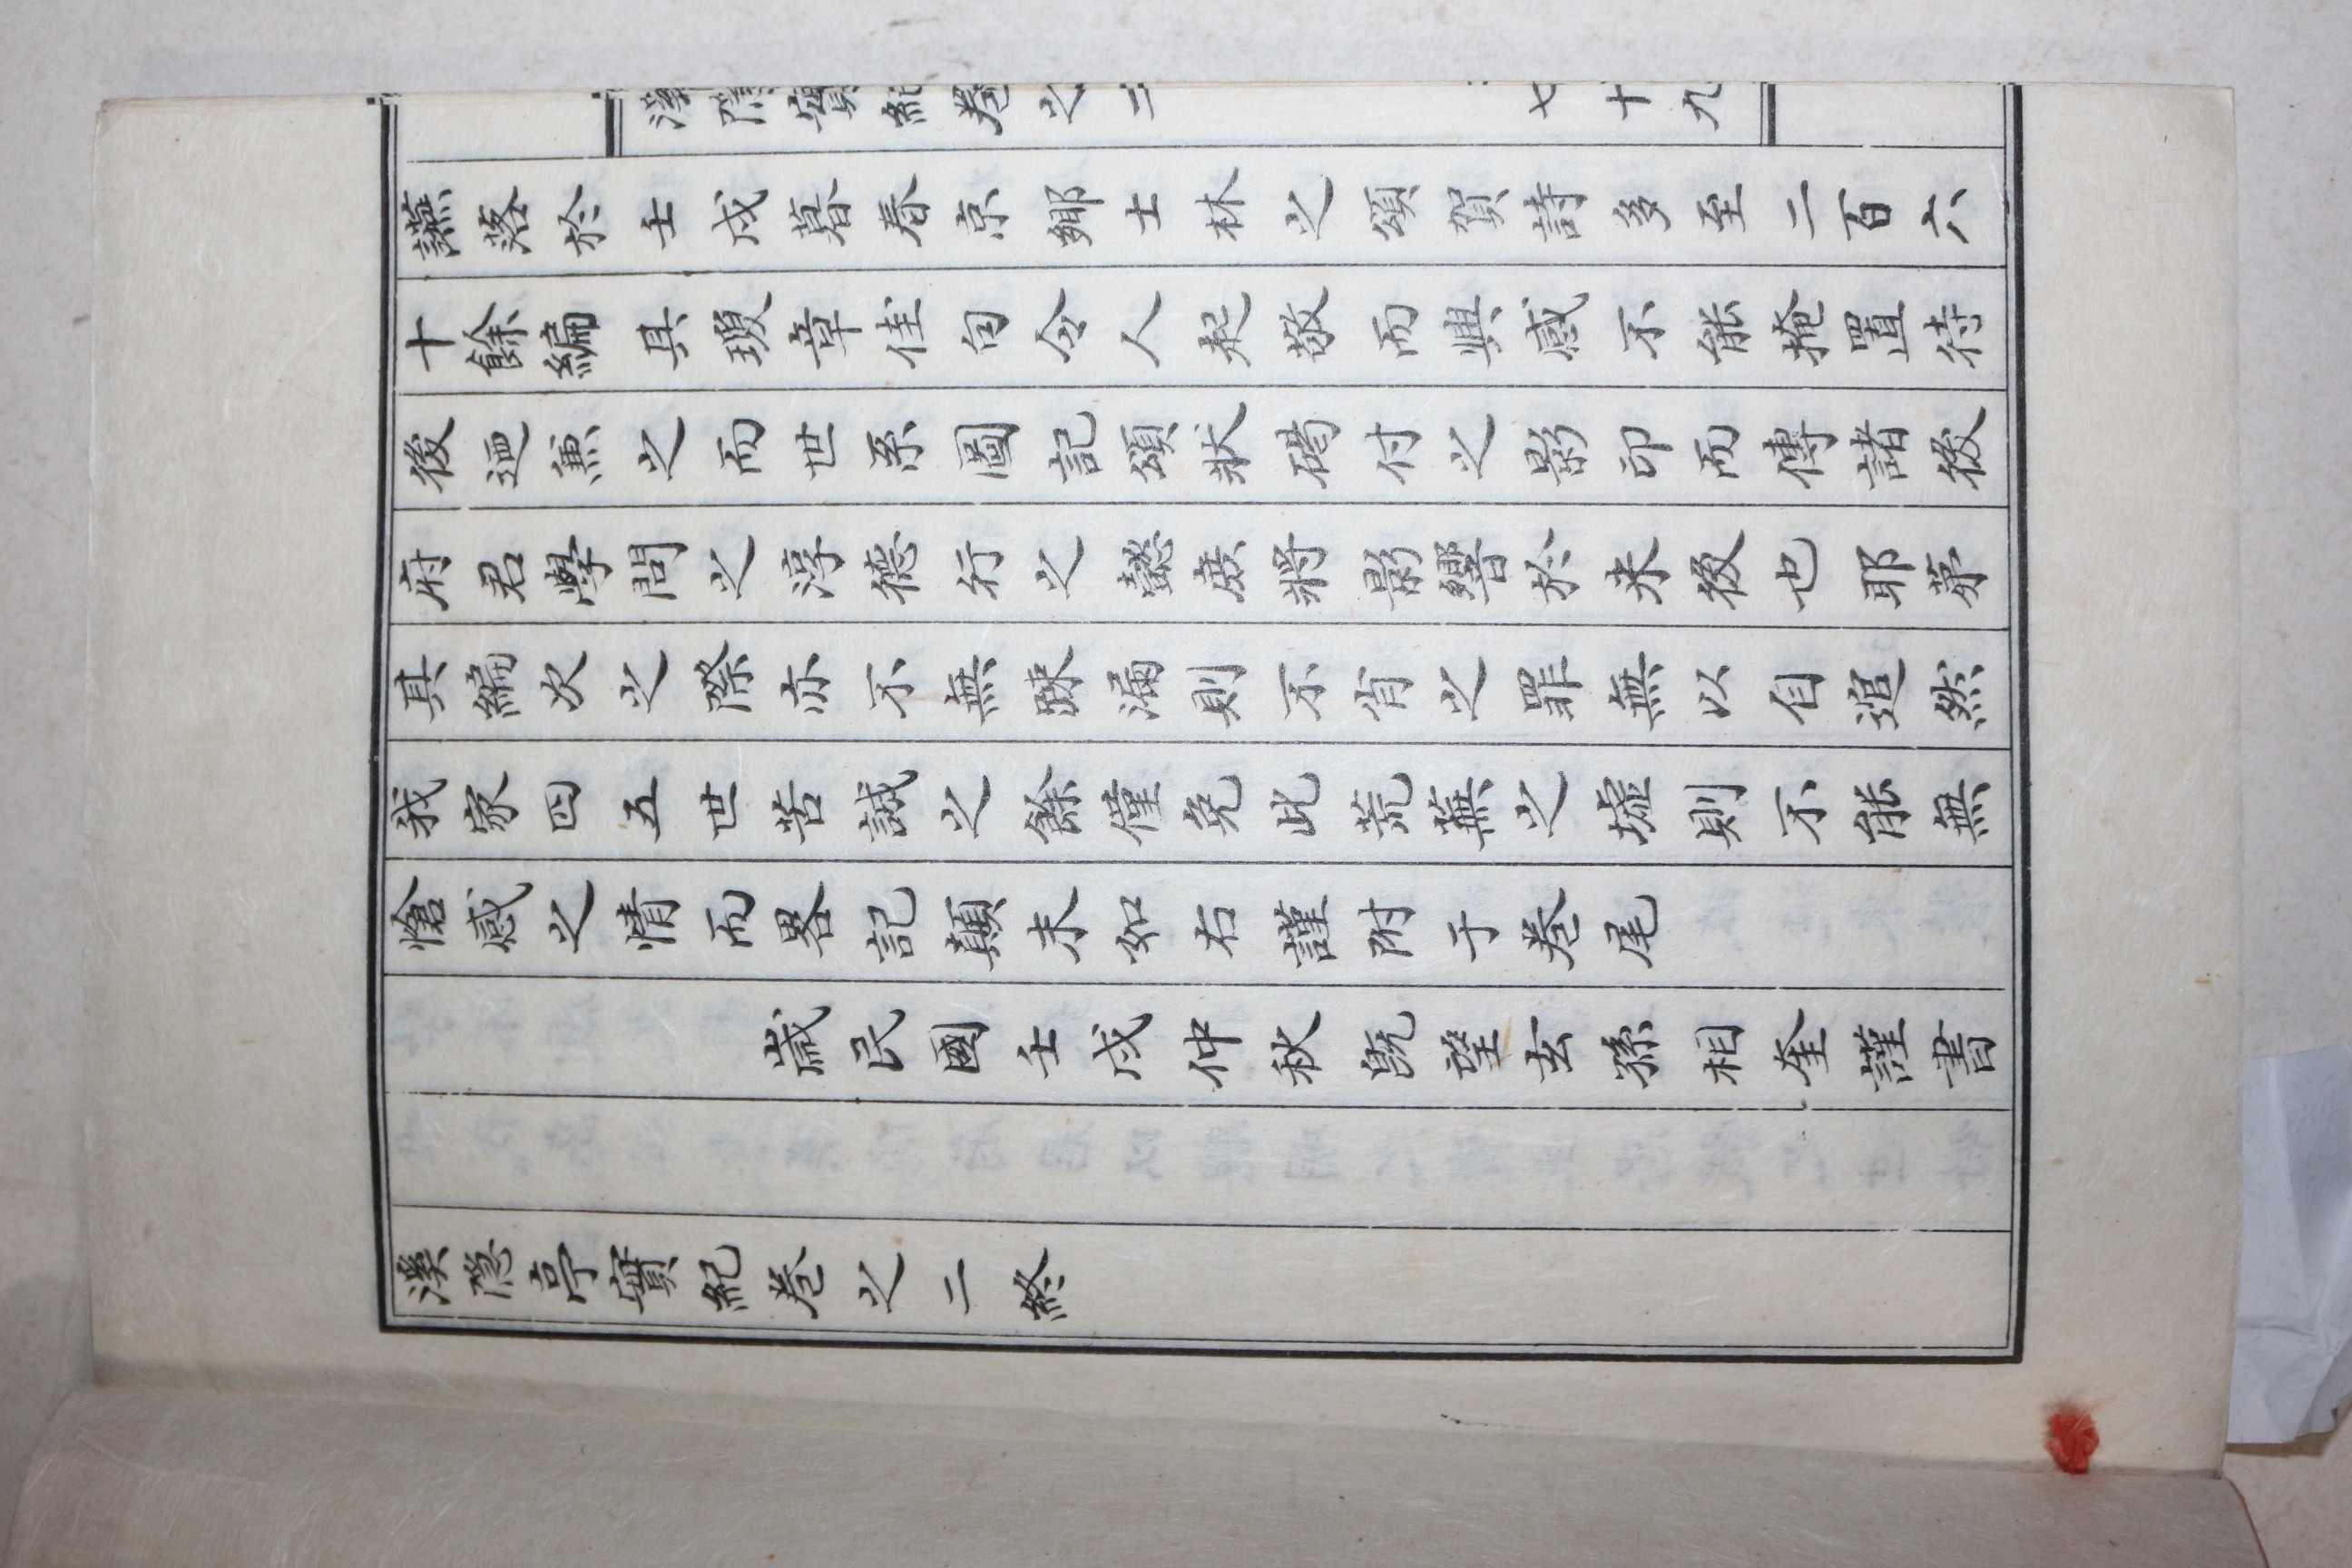 溪隱實紀卷之二 七十九
讌落於壬戌暮春京鄉士林之頌賀詩多至二百六
十餘編具瓊章佳句令人起敬而興感不能掩置待
後迺兼之而世系圖記頌狀碣付之影印而傳諸後
府君學問之淳德行之懿庶將影響於来後也耶第
其編次之際亦不無踈漏則不肖之罪無以自逭然
我家四五世苦誠之餘僅免此荒蕪之墟則不能無
愴感之情而畧記顛末如右謹附于卷尾
歲民國壬戌仲秋旣望玄孫相奎謹書
溪隱亭實紀卷之二終